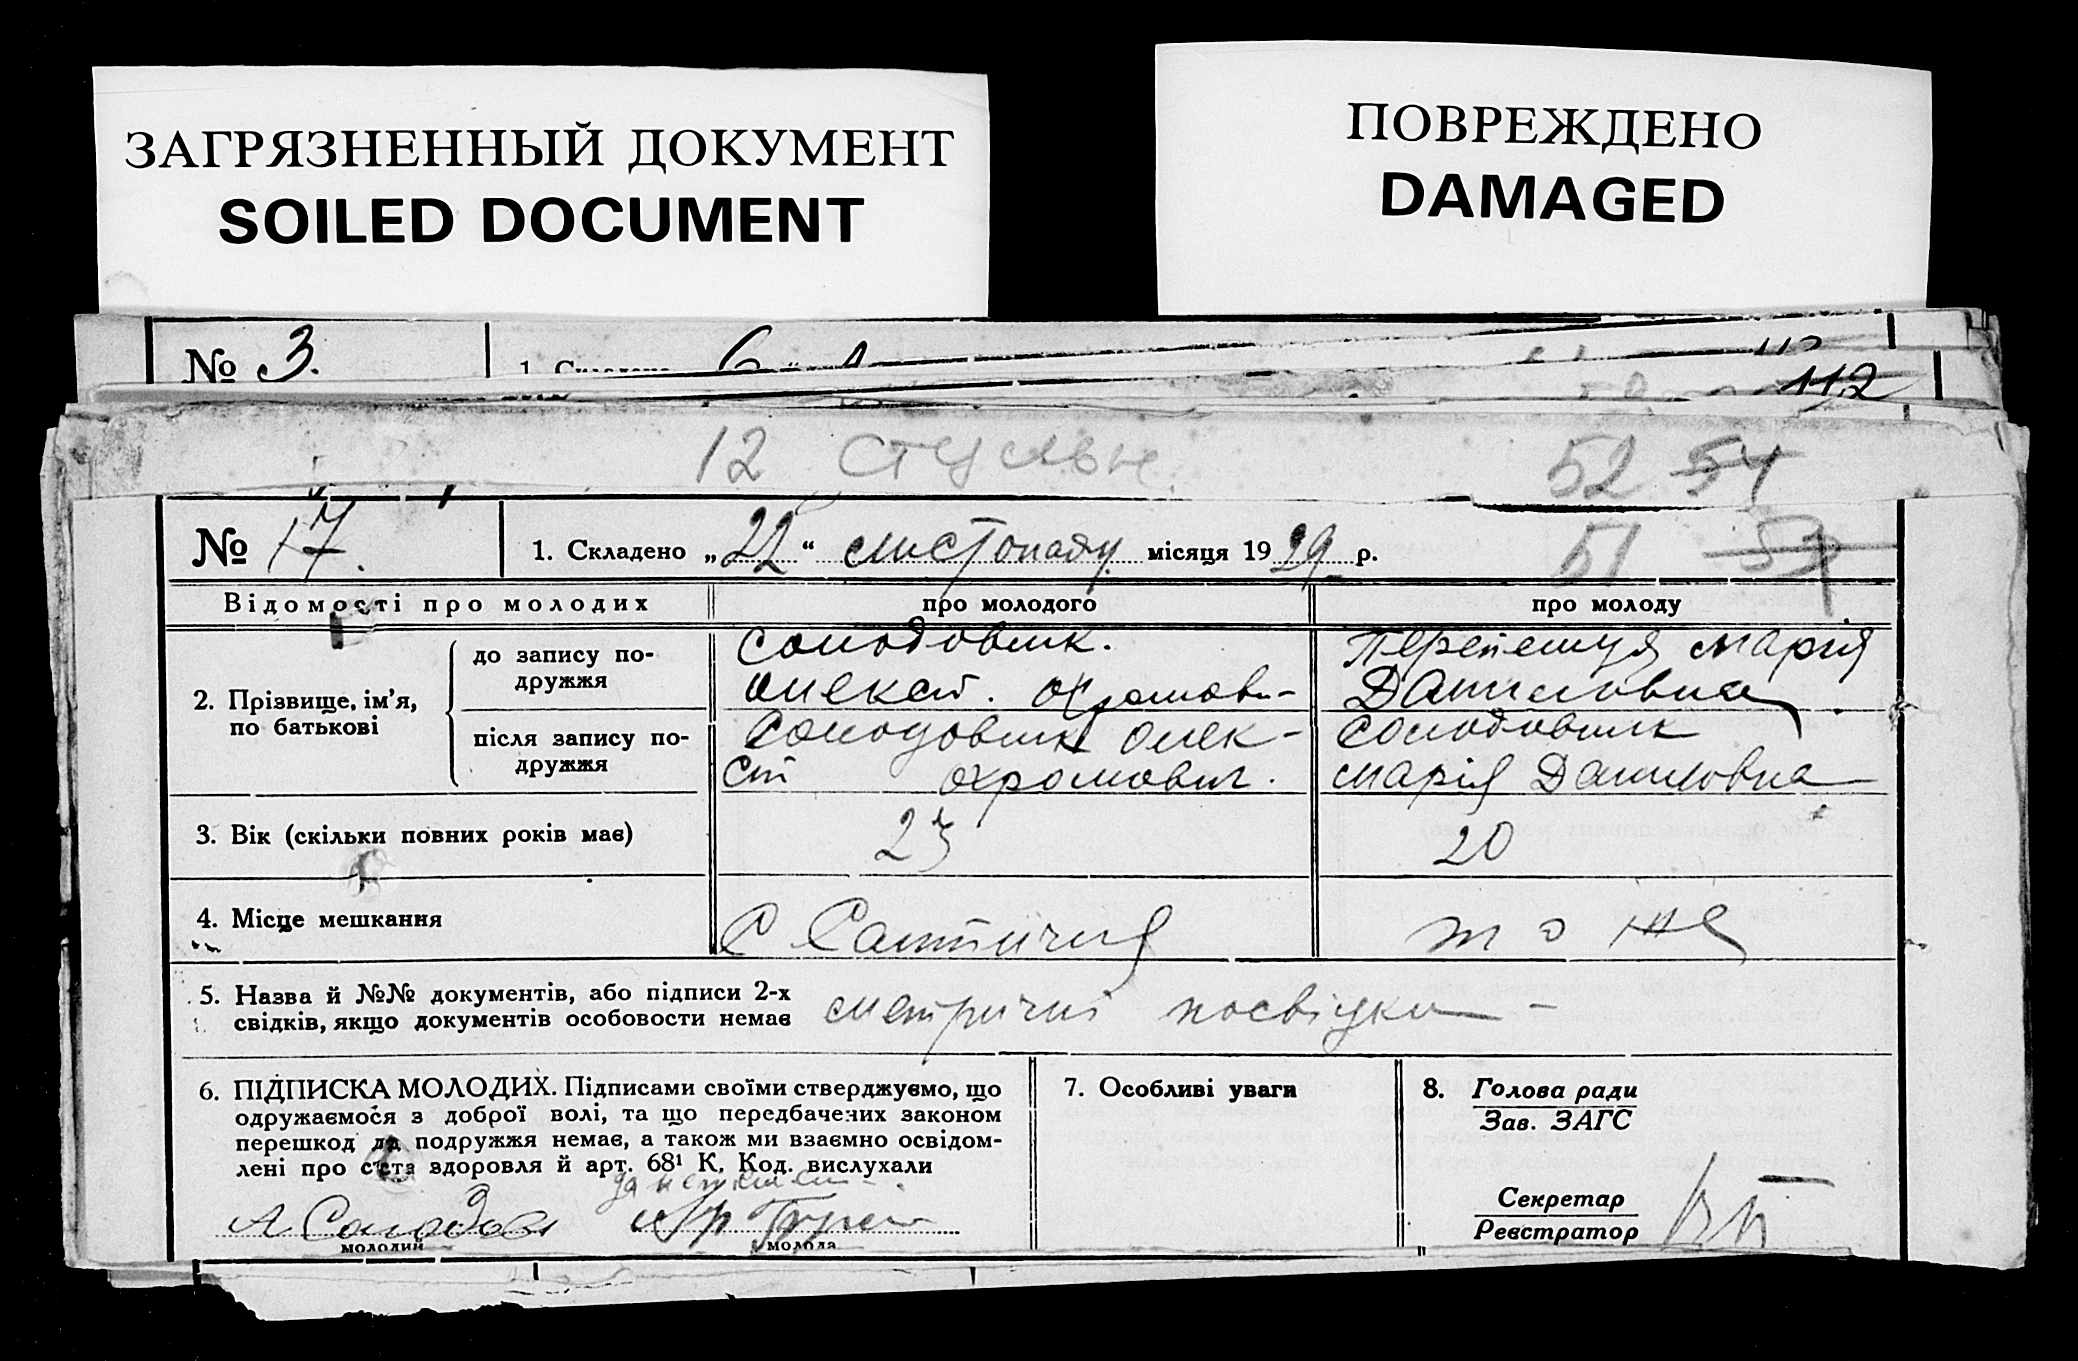 ЗАГРЯЗНЕННЫЙ ДОКУМЕНТ
SOILED DOCUMENT
ПОВРЕЖДЕНО
DAMAGED
№ 3.
112
12
52 54
№ 17.
1. Складено „22“ листопаду місяця 1929 р.
51
Відомості про молодих
про молодого
про молоду
2. Прізвище, ім’я, по батькові
до запису по-
дружжя
Солодовник.
Олексій.
Марія
Даниловна
після запису по-
дружжя
Солодовник Олек-
сій охромович.
Солодовник
Марія Даниловна
3. Вік (скільки повних років має)
23
20
4. Місце мешкання
С
то же
5. Назва й №№ документів, або підписи 2-х
свідків, якщо документів особовости немає
метричні посвідки
6. ПІДПИСКА МОЛОДИХ. Підписами своїми стверджуємо, що
одружаємося з доброї волі, та що передбачених законом
перешкод до подружжя немає, а також ми взаємно освідом-
лені про стан здоровля й арт. 68¹ К. Код. вислухали
А Солодов
молодий
молода
7. Особливі уваги
8. Голова ради
Зав. ЗАГС
Секретар
Реєстратор